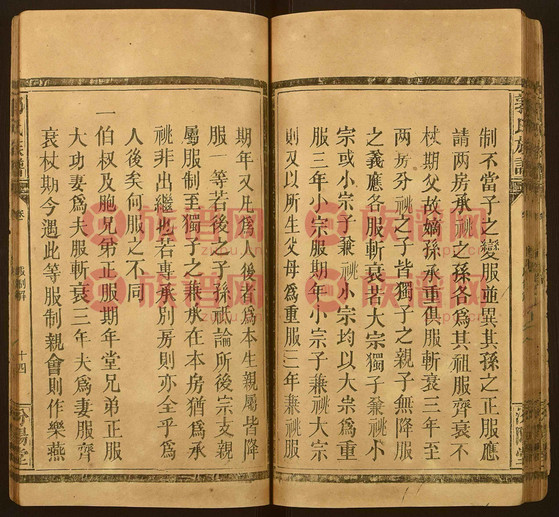 郭氏族譜
制不當子之變服並異其孫之正服應
請兩房承祧之孫各爲其祖服齊衰不
杖期父故嫡孫承重俱服斬衰三年至
两房分祧之子皆獨子之親子無降服
之義應各服斬衰若大宗獨子兼祧小
宗或小宗子兼祧小宗均以大宗爲重
服三年小宗服期年小宗子兼祧大宗
則又以所生父母爲重服三年兼祧服
期年又凡爲人後者爲本生親屬皆降
服一等若後之子孫祇論所後宗支親
屬服制至獨子之兼承在本房猶爲承
祧非出繼也若專承別房則亦全乎爲
人後矣何服之不同
一伯叔及胞兄弟正服期年堂兄弟正服
大功妻爲夫服斬衰三年夫爲妻服齊
衰杖期今遇此等服制親會則作樂燕
郭氏族譜
卷
服制解
十四
汾陽堂
族谱网
族谱网
族谱网
族谱网